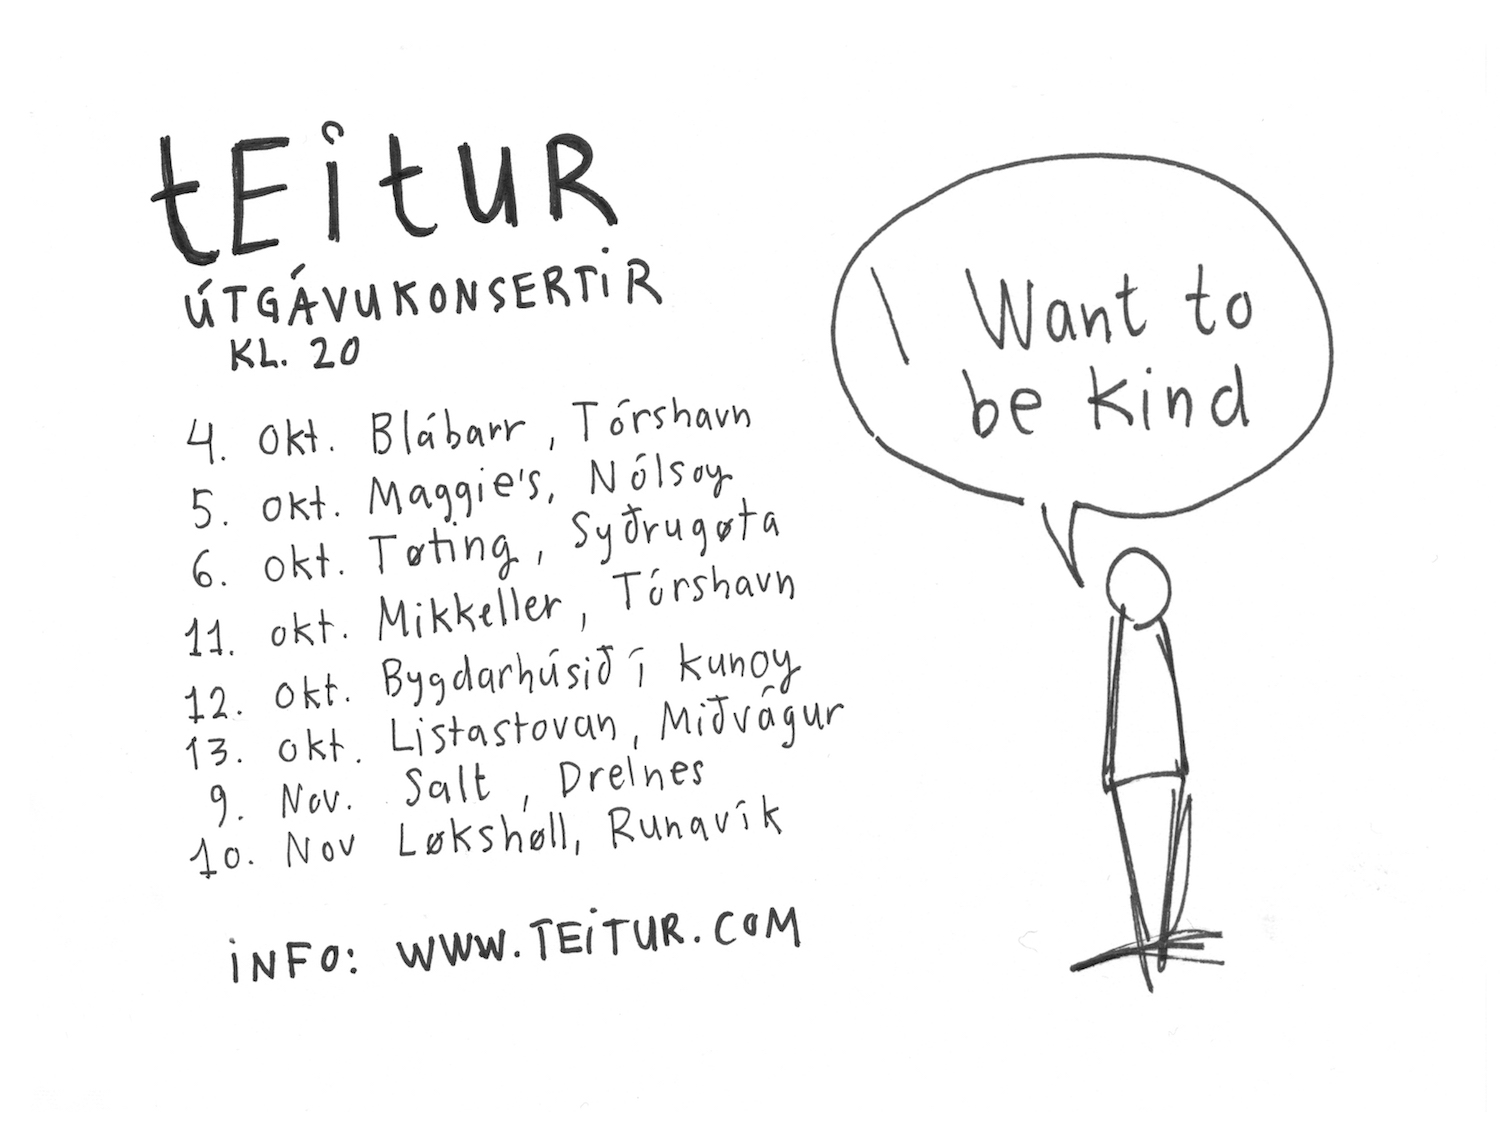 tEitUR
ÚTGÁVUKONSERTiR
KL. 20
4. Okt. Blábarr, Tórshavn
5. Okt. Maggie's, Nólsoy
6. Okt. Tøting, Syðrugøta
11. Okt. Mikkeller, Tórshavn
12. Okt. Bygdarhúsið í Kunoy
13. Okt. Listastovan, Miðvágur
9. Nov. Salt, Drelnes
10. Nov Løkshøll, Runavík
iNFO: WWW.TEiTUR.COM
I Want to
be kind